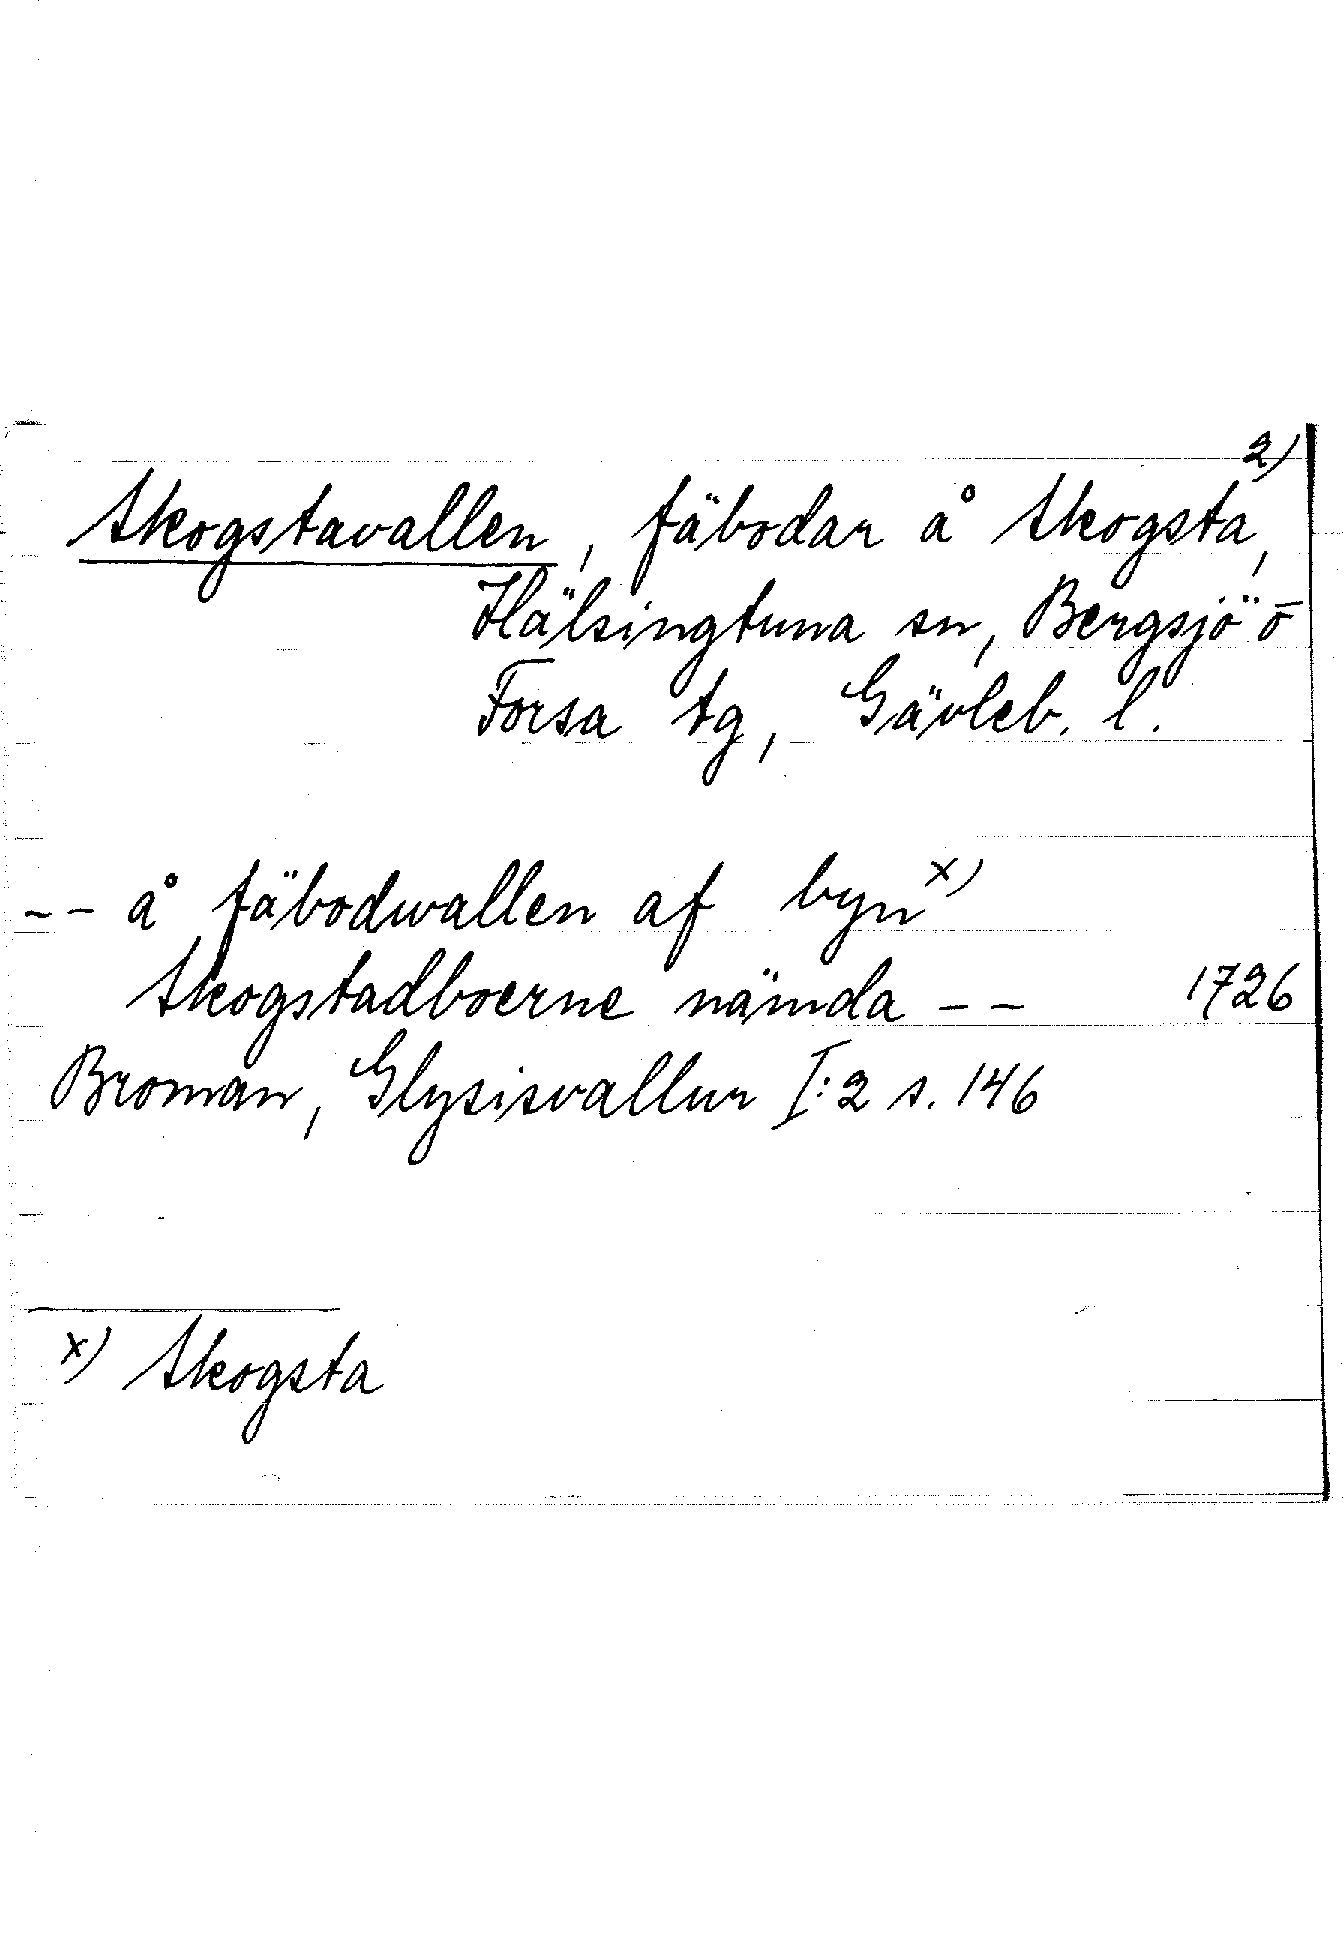 2)
Skogstavallen, fäbodar å Skogsta,
Hälsingtuna sn, Bergsjö o
Forsa tg, Gävleb. l.
-- å fäbodwallen af byn x)
Skogstadboerne nämda -- 1726
Broman, Glysisvallur I:2 s. 146
x) Skogsta